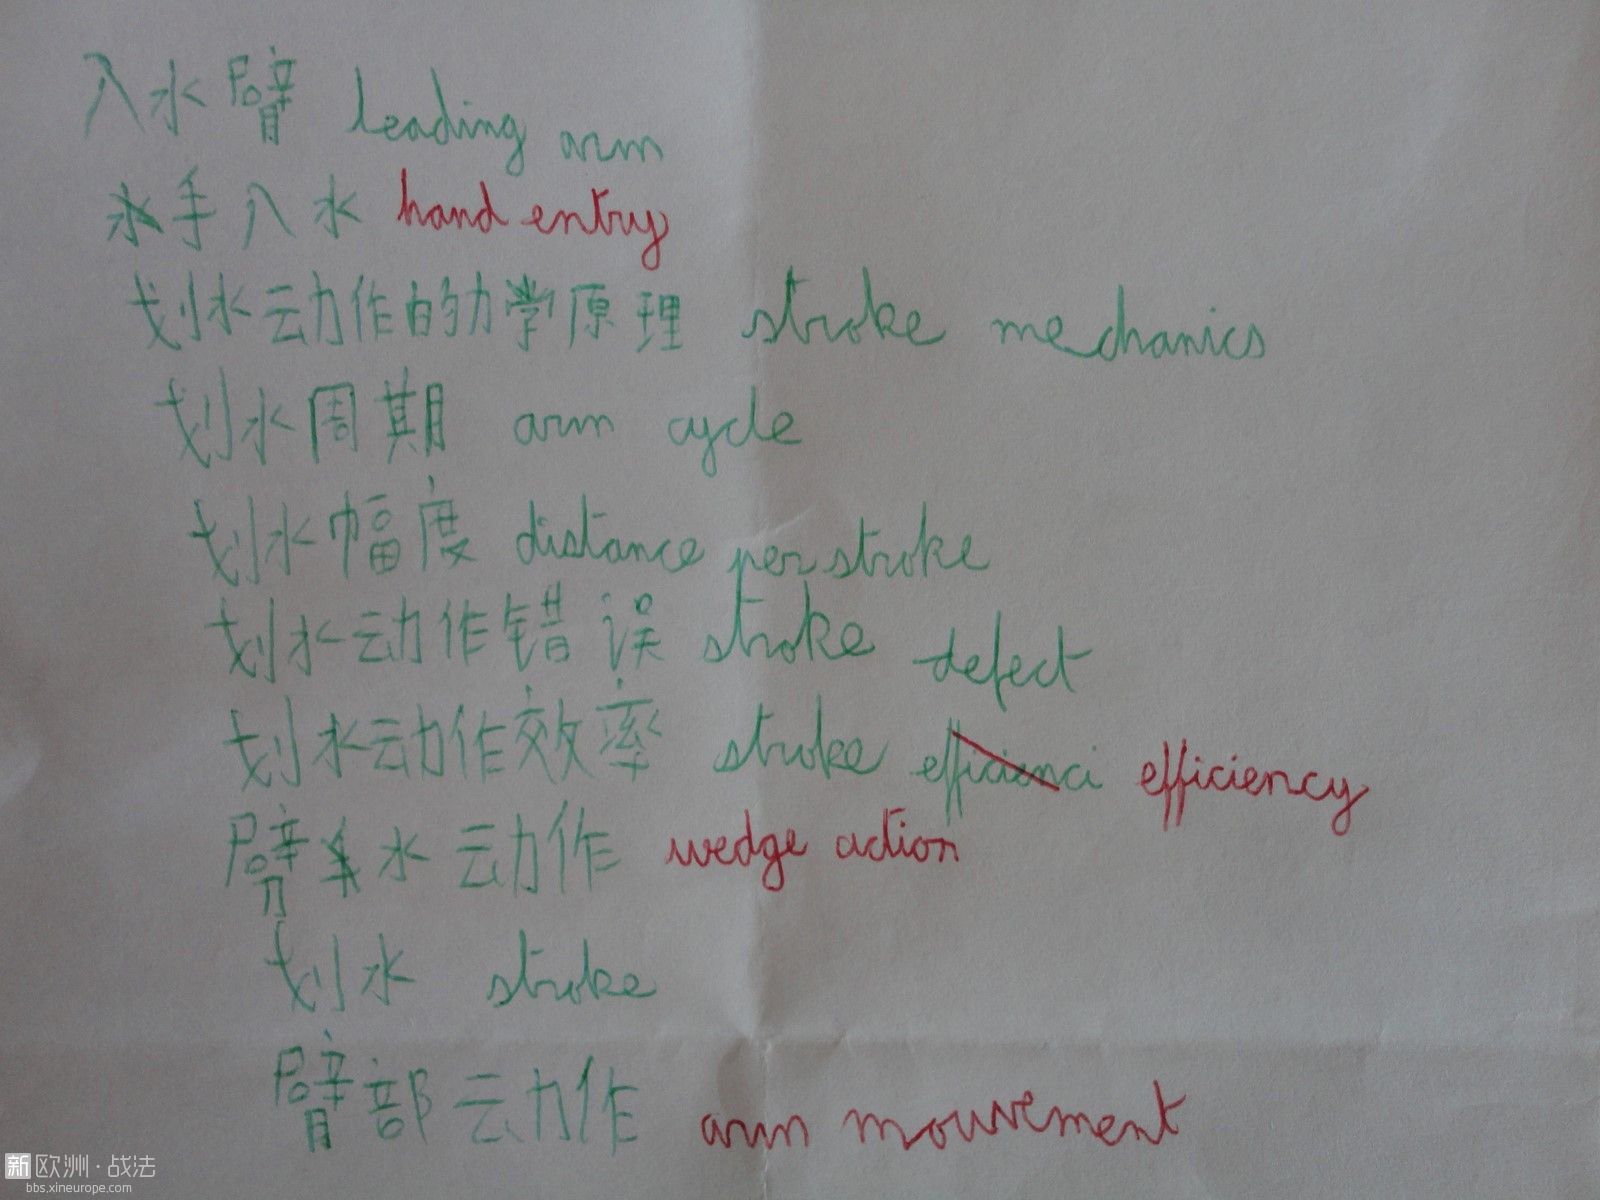 入水臂 leading arm
手入水 hand entry
划水动作的力学原理 stroke mechanics
划水周期 arm cycle
划水幅度 distance per stroke
划水动作错误 stroke defect
划水动作效率 stroke efficienci efficiency
臂水动作 wedge action
划水 stroke
臂部动作 arm mouvement
新欧洲·战法
bbs.xineurope.com